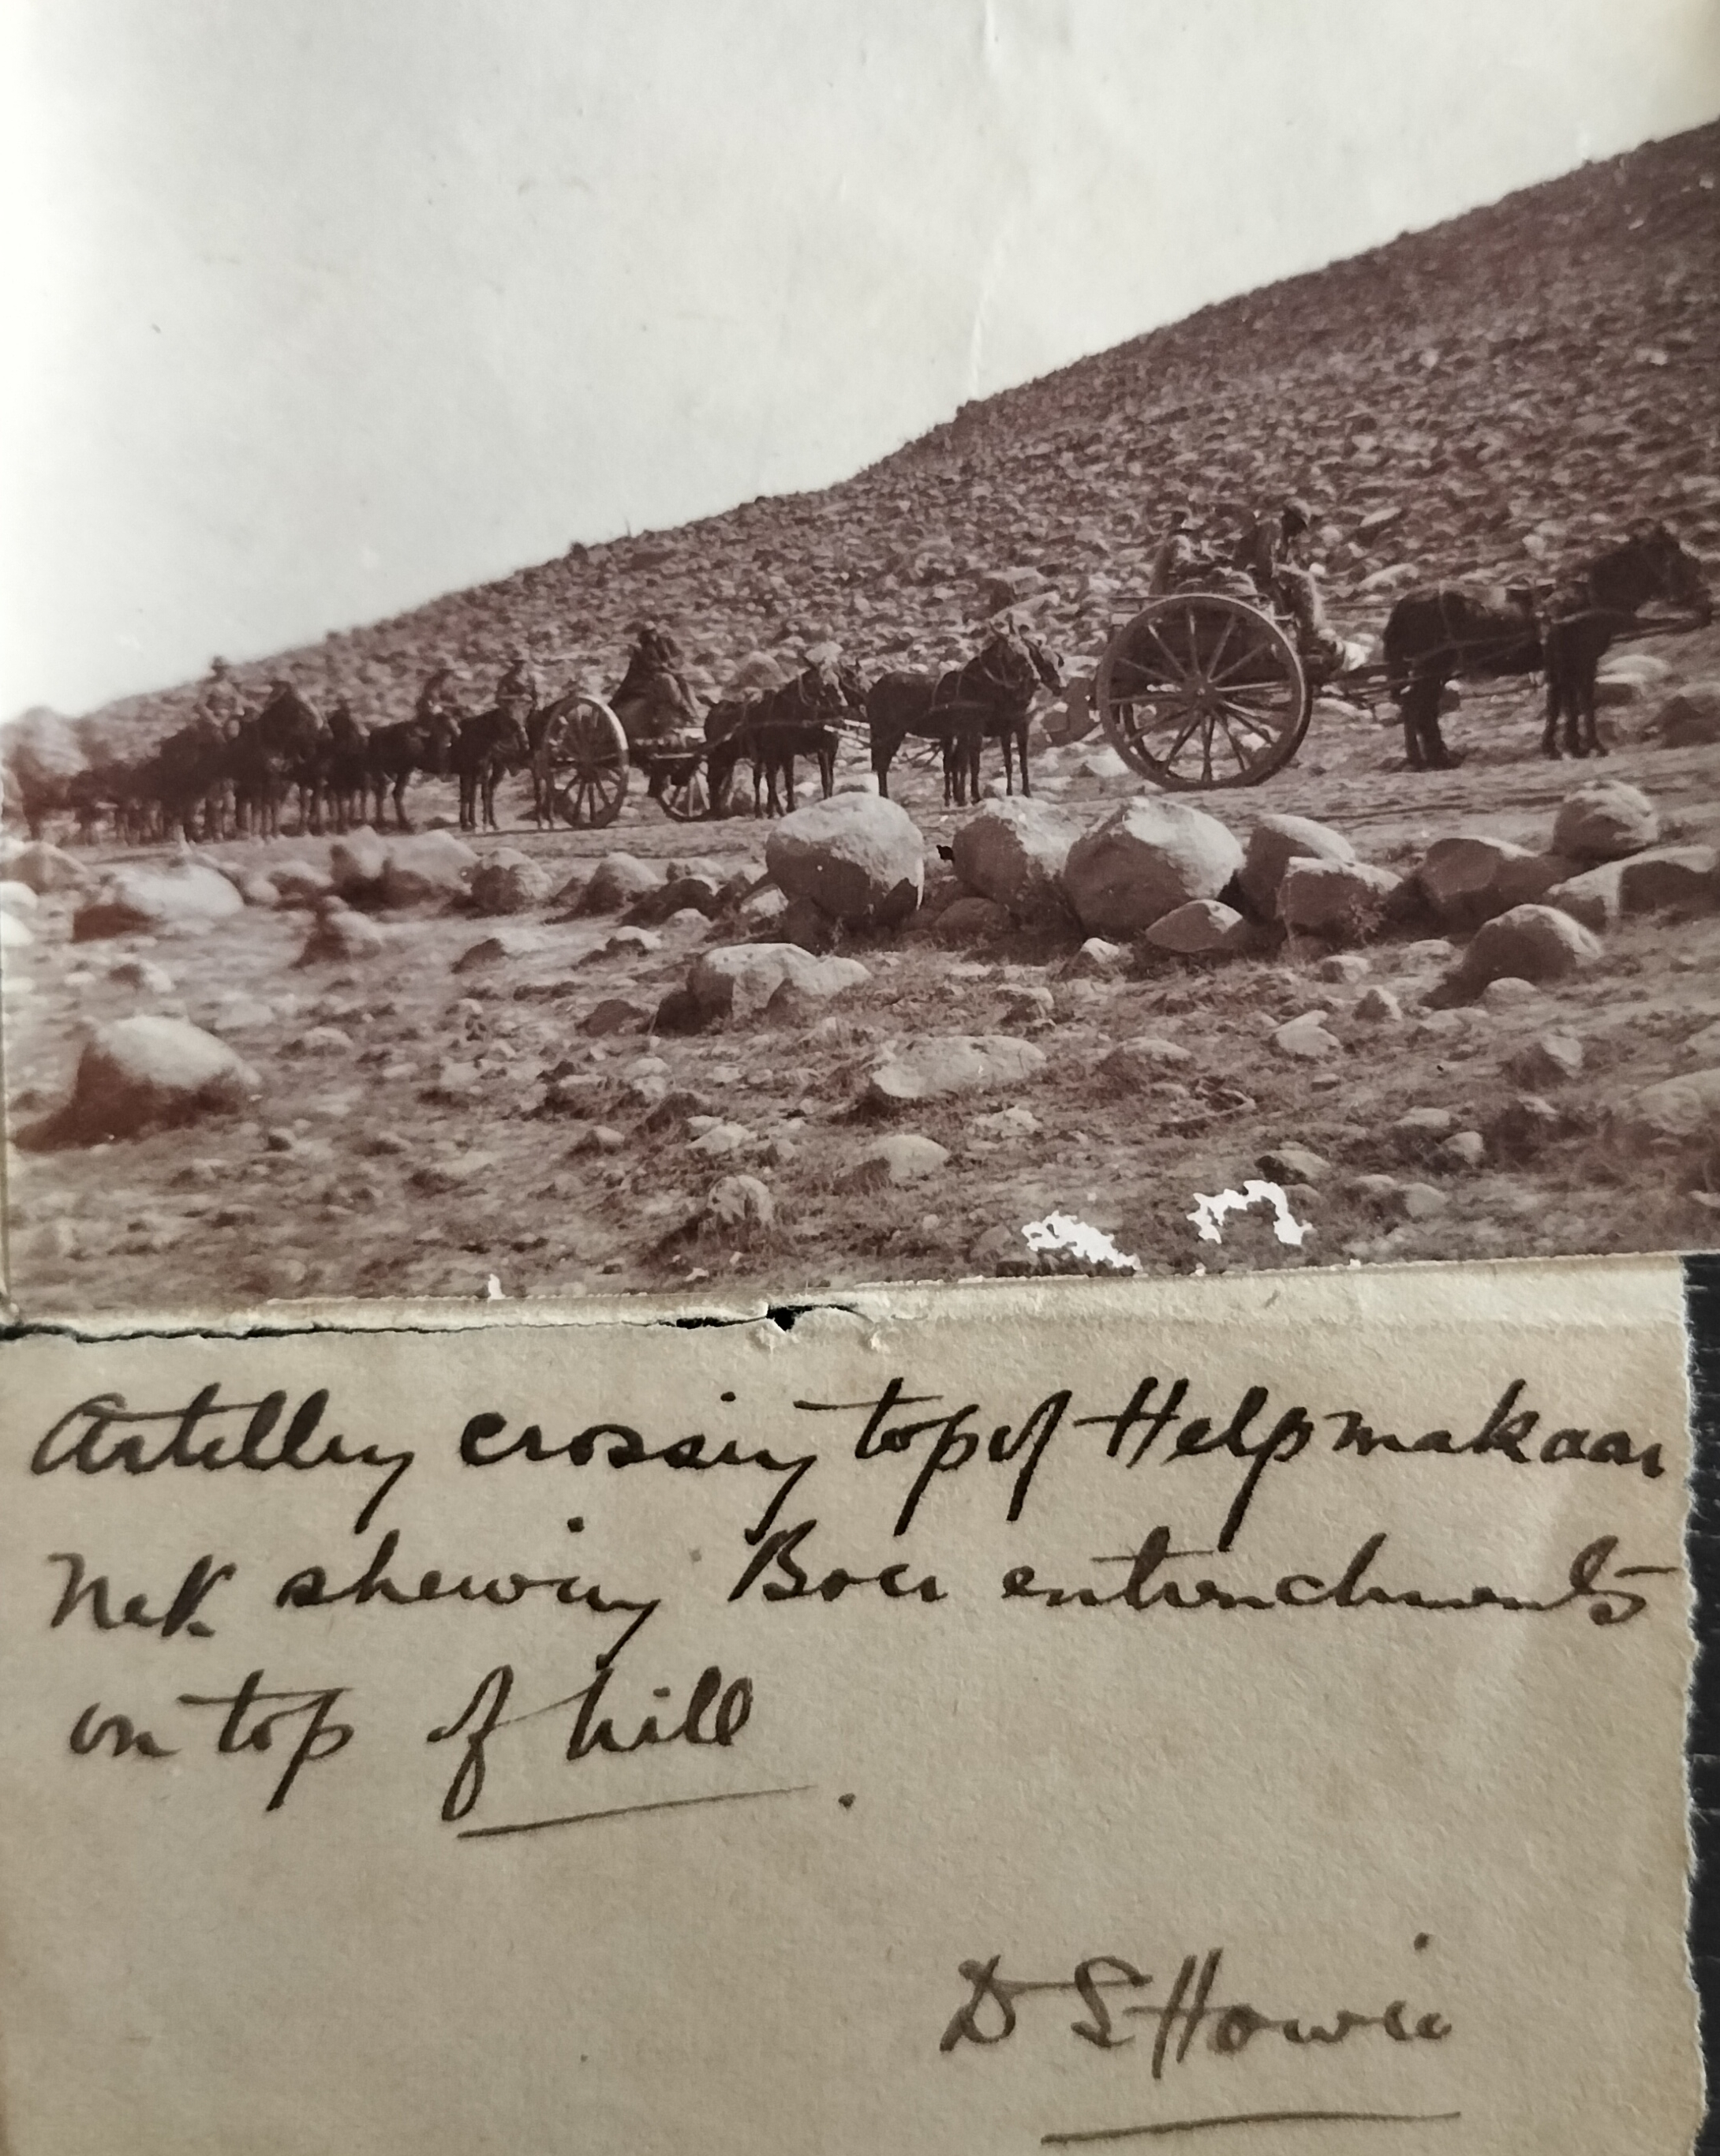 Artillery crossing top of Helpmakaar
Nek shewing Boer entrenchments
on top of hill.
D S Howie